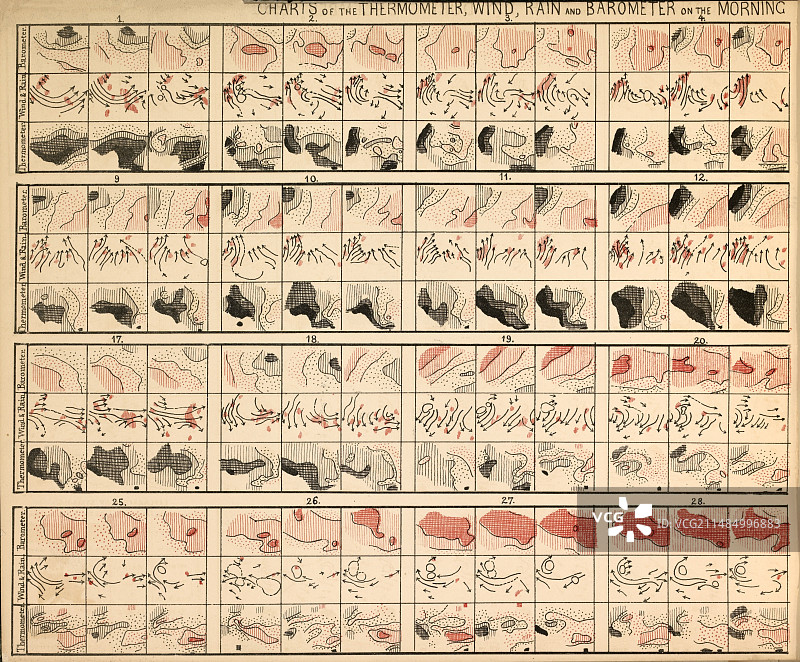 CHARTS OF THE THERMOMETER, WIND, RAIN AND BAROMETER ON THE MORNING
1. 2. 3. 4.
Barometer.
Wind & Rain.
Thermometer.
9 10. 11. 12.
Barometer.
Wind & Rain.
Thermometer.
17. 18. 19. 20.
Barometer.
Wind & Rain.
Thermometer.
25. 26. 27. 28.
Barometer.
Wind & Rain.
Thermometer.
VCG VCG211484996883